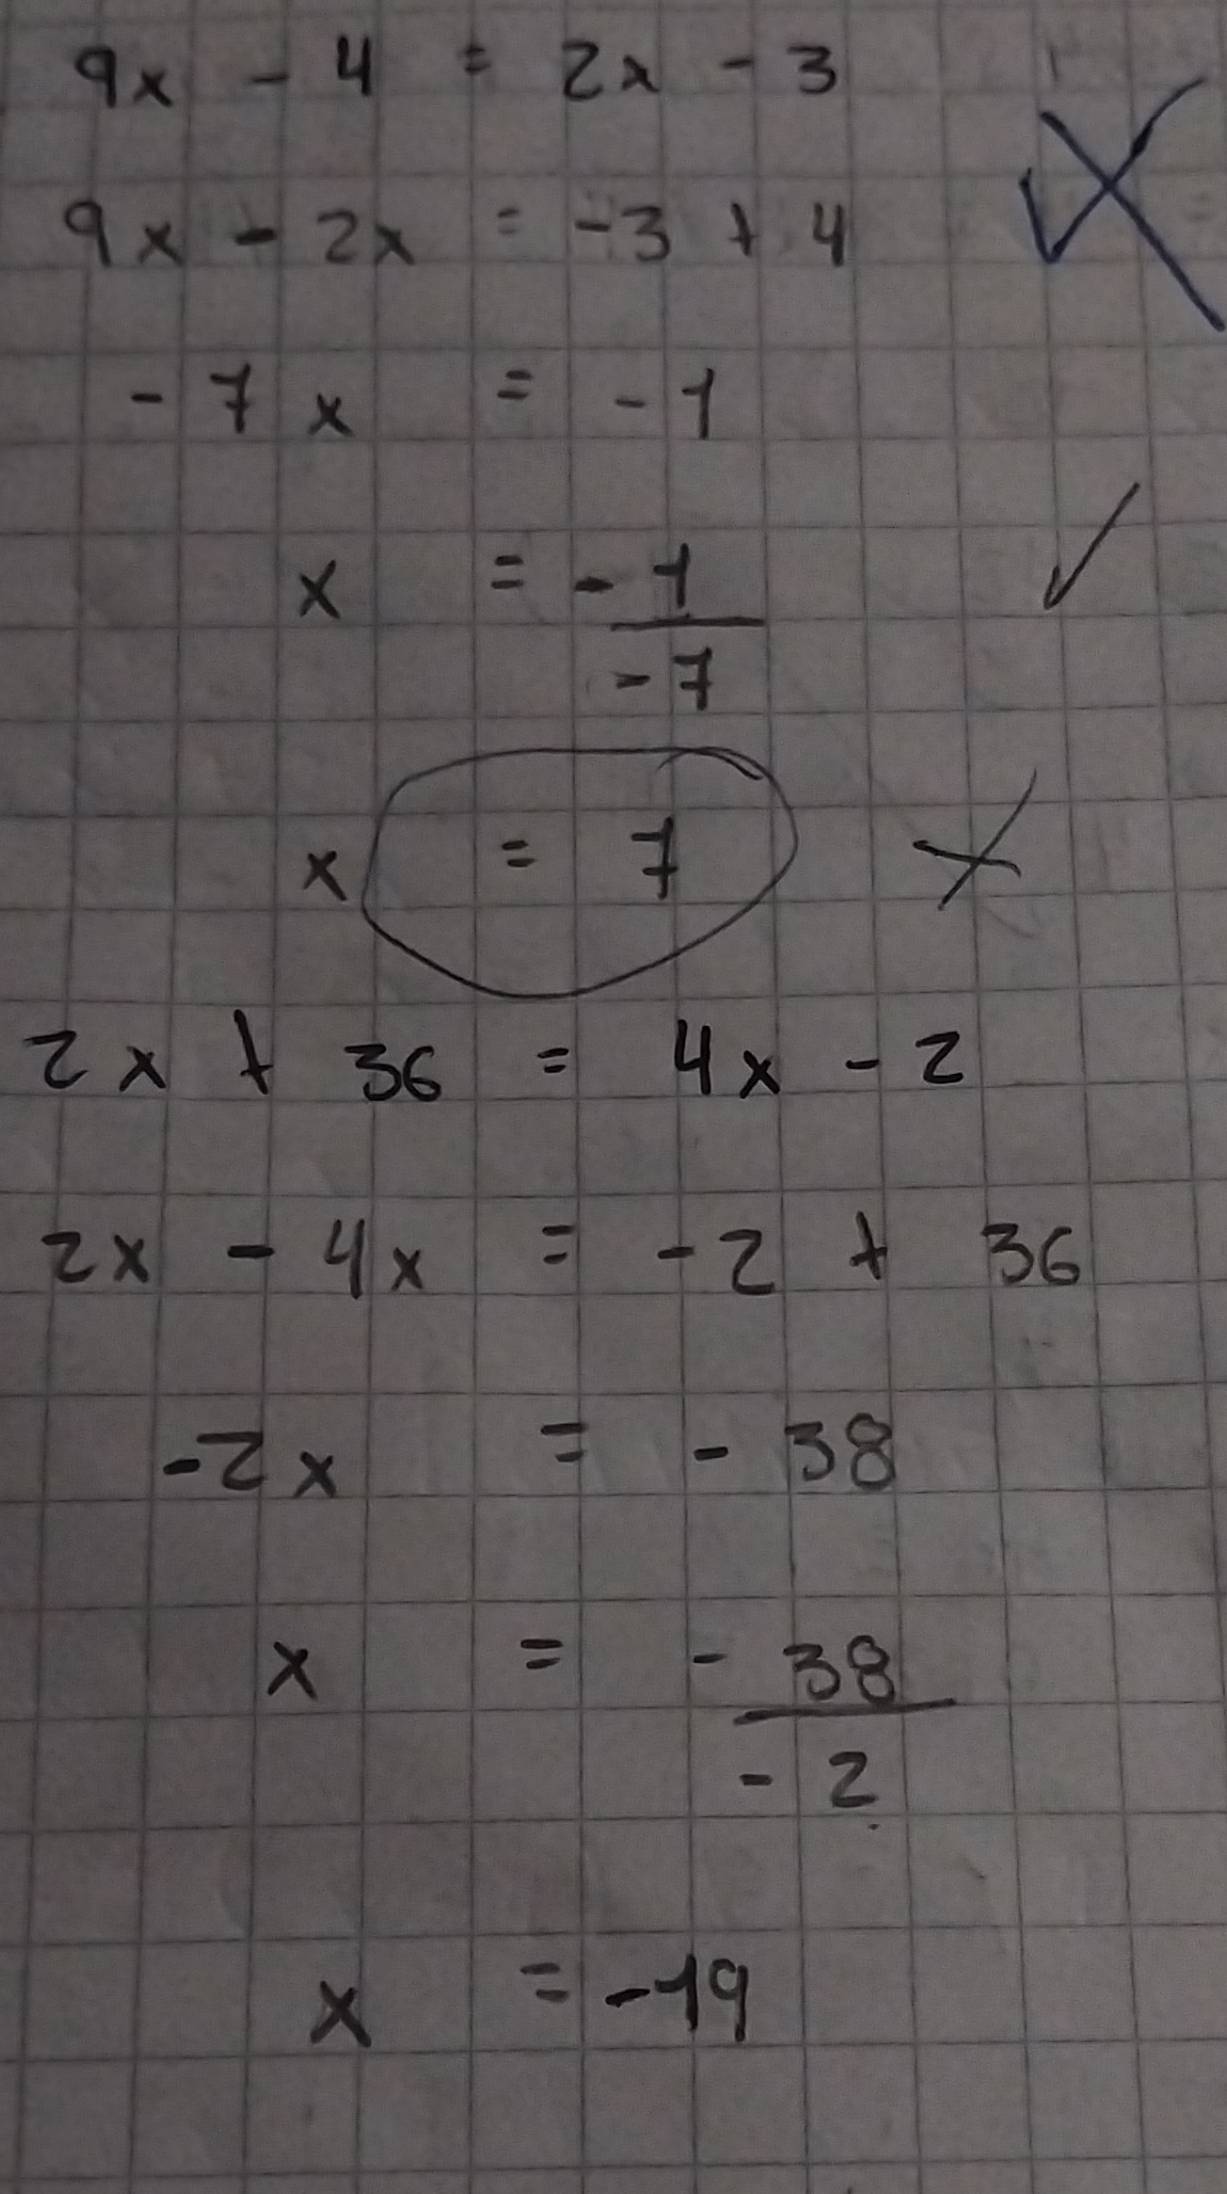 9x - 4 = 2x - 3
9x - 2x = -3 + 4
- 7x = - 1
x = - 1
- 7
x = 7
2x + 36 = 4x - 2
2x - 4x = - 2 + 36
-2x = - 38
x = - 38
- 2
x = -19